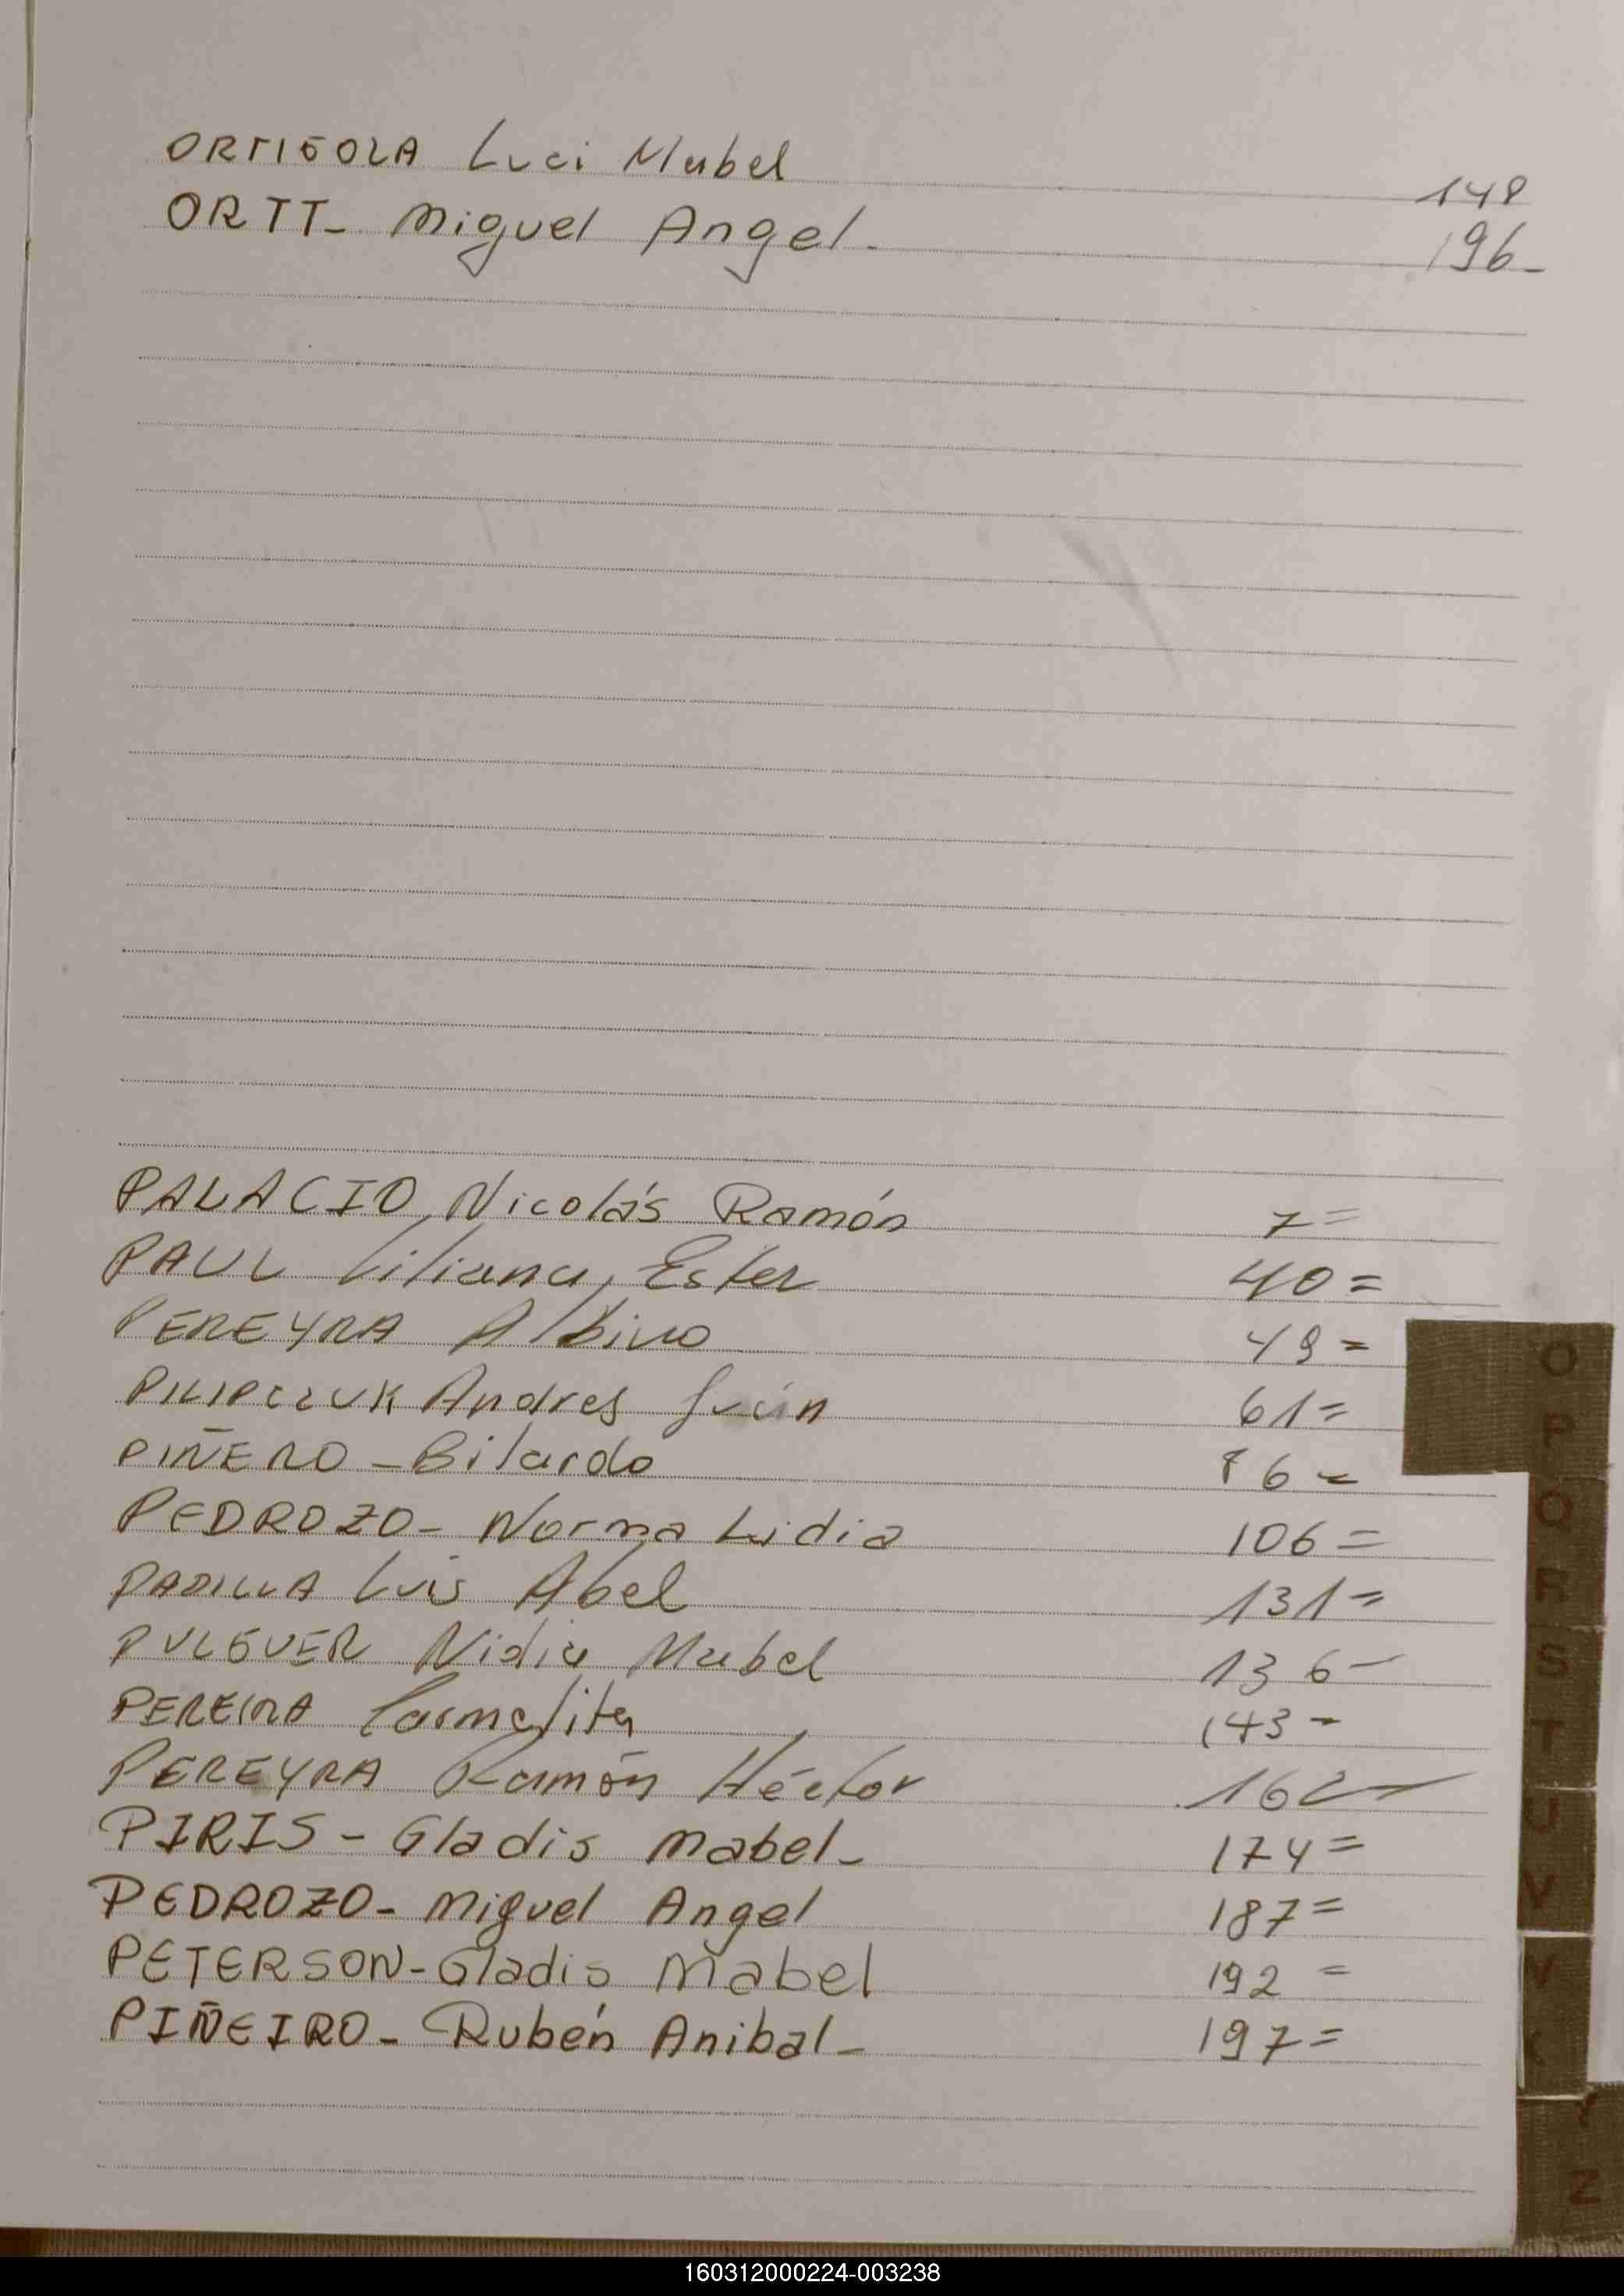 ORTIGOZA Luci Mabel 148
ORTT- Miguel Angel- 196-
PALACIO, Nicolás Ramón 7=
PAUL Liliana, Ester 40=
PEREYRA Albino 49=
PILIPCZUK Andres Juan 61=
PIÑERO - Bilardo 86=
PEDROZO- Norma Lidia 106=
PADILLA Luis Abel 131=
PULGUER Nidia Mabel 136-
PEREIRA Carmelita 143-
PEREYRA Ramón Héctor 162-
PIRIS - Gladis Mabel- 174=
PEDROZO- Miguel Angel 187=
PETERSON-Gladis Mabel 192=
PIÑEIRO- Rubén Anibal- 197=
O
P
Q
R
S
T
U
V
W
Z
160312000224-003238